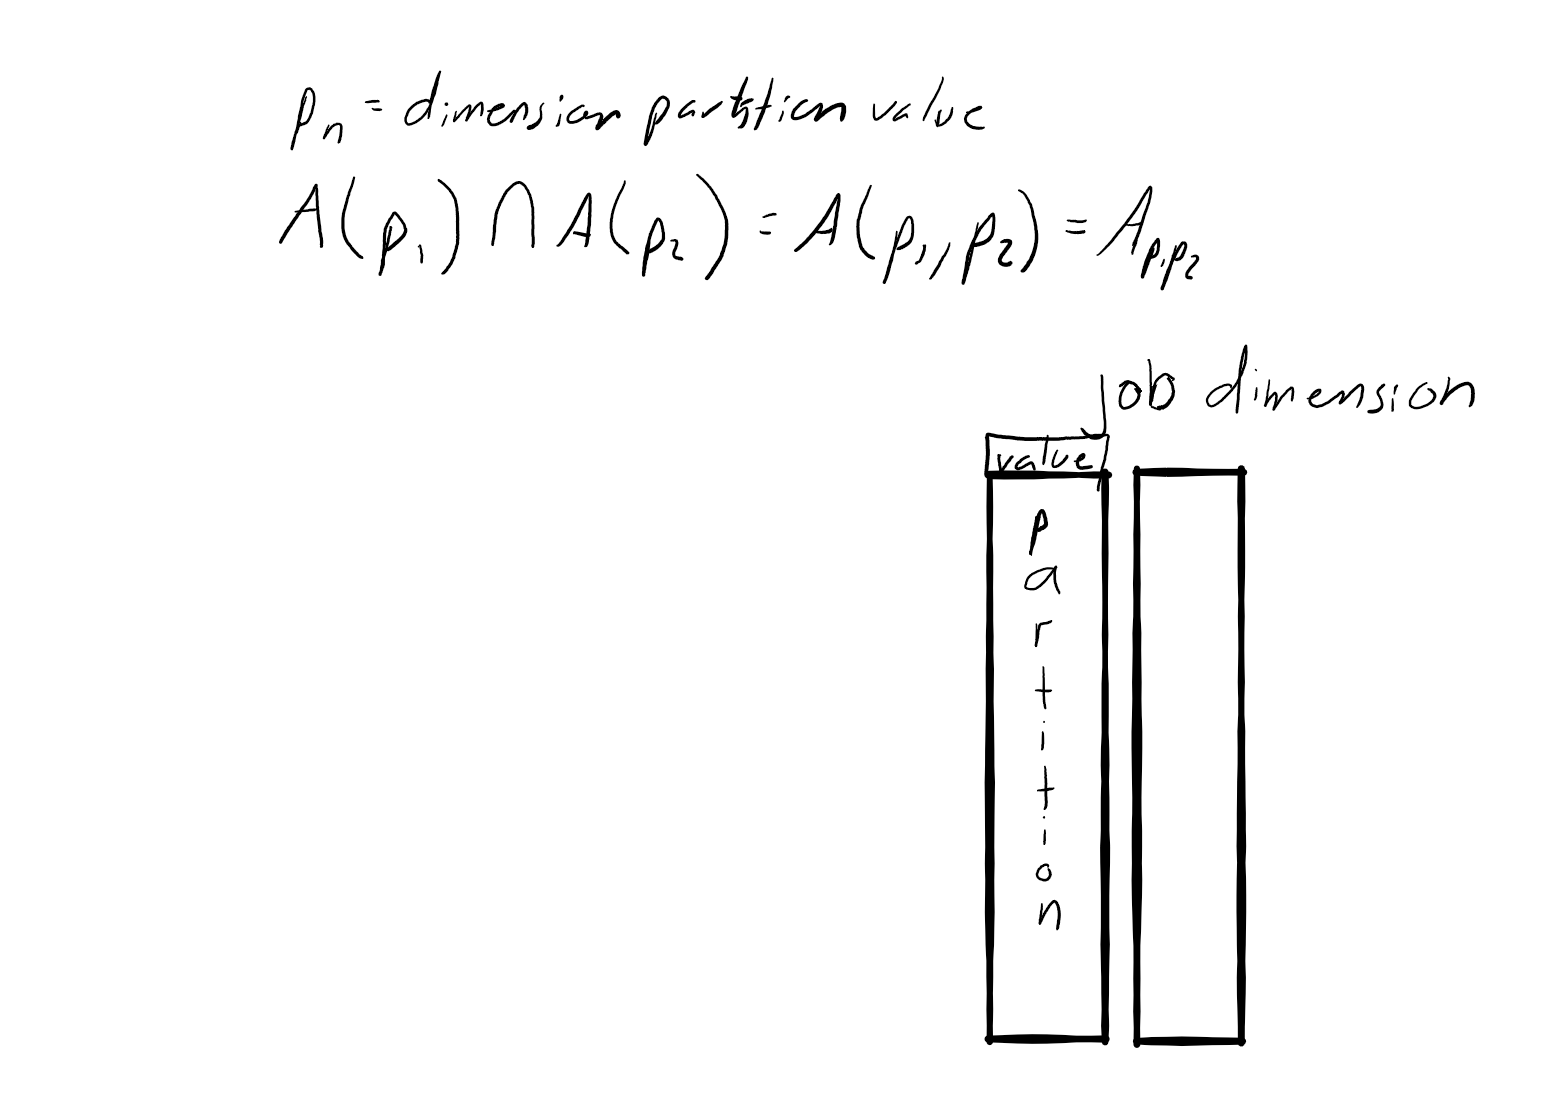 pₙ = dimension partition value
A(p₁) ∩ A(p₂) = A(p₁, p₂) = Aₚ₁ₚ₂
job dimension
value
partition